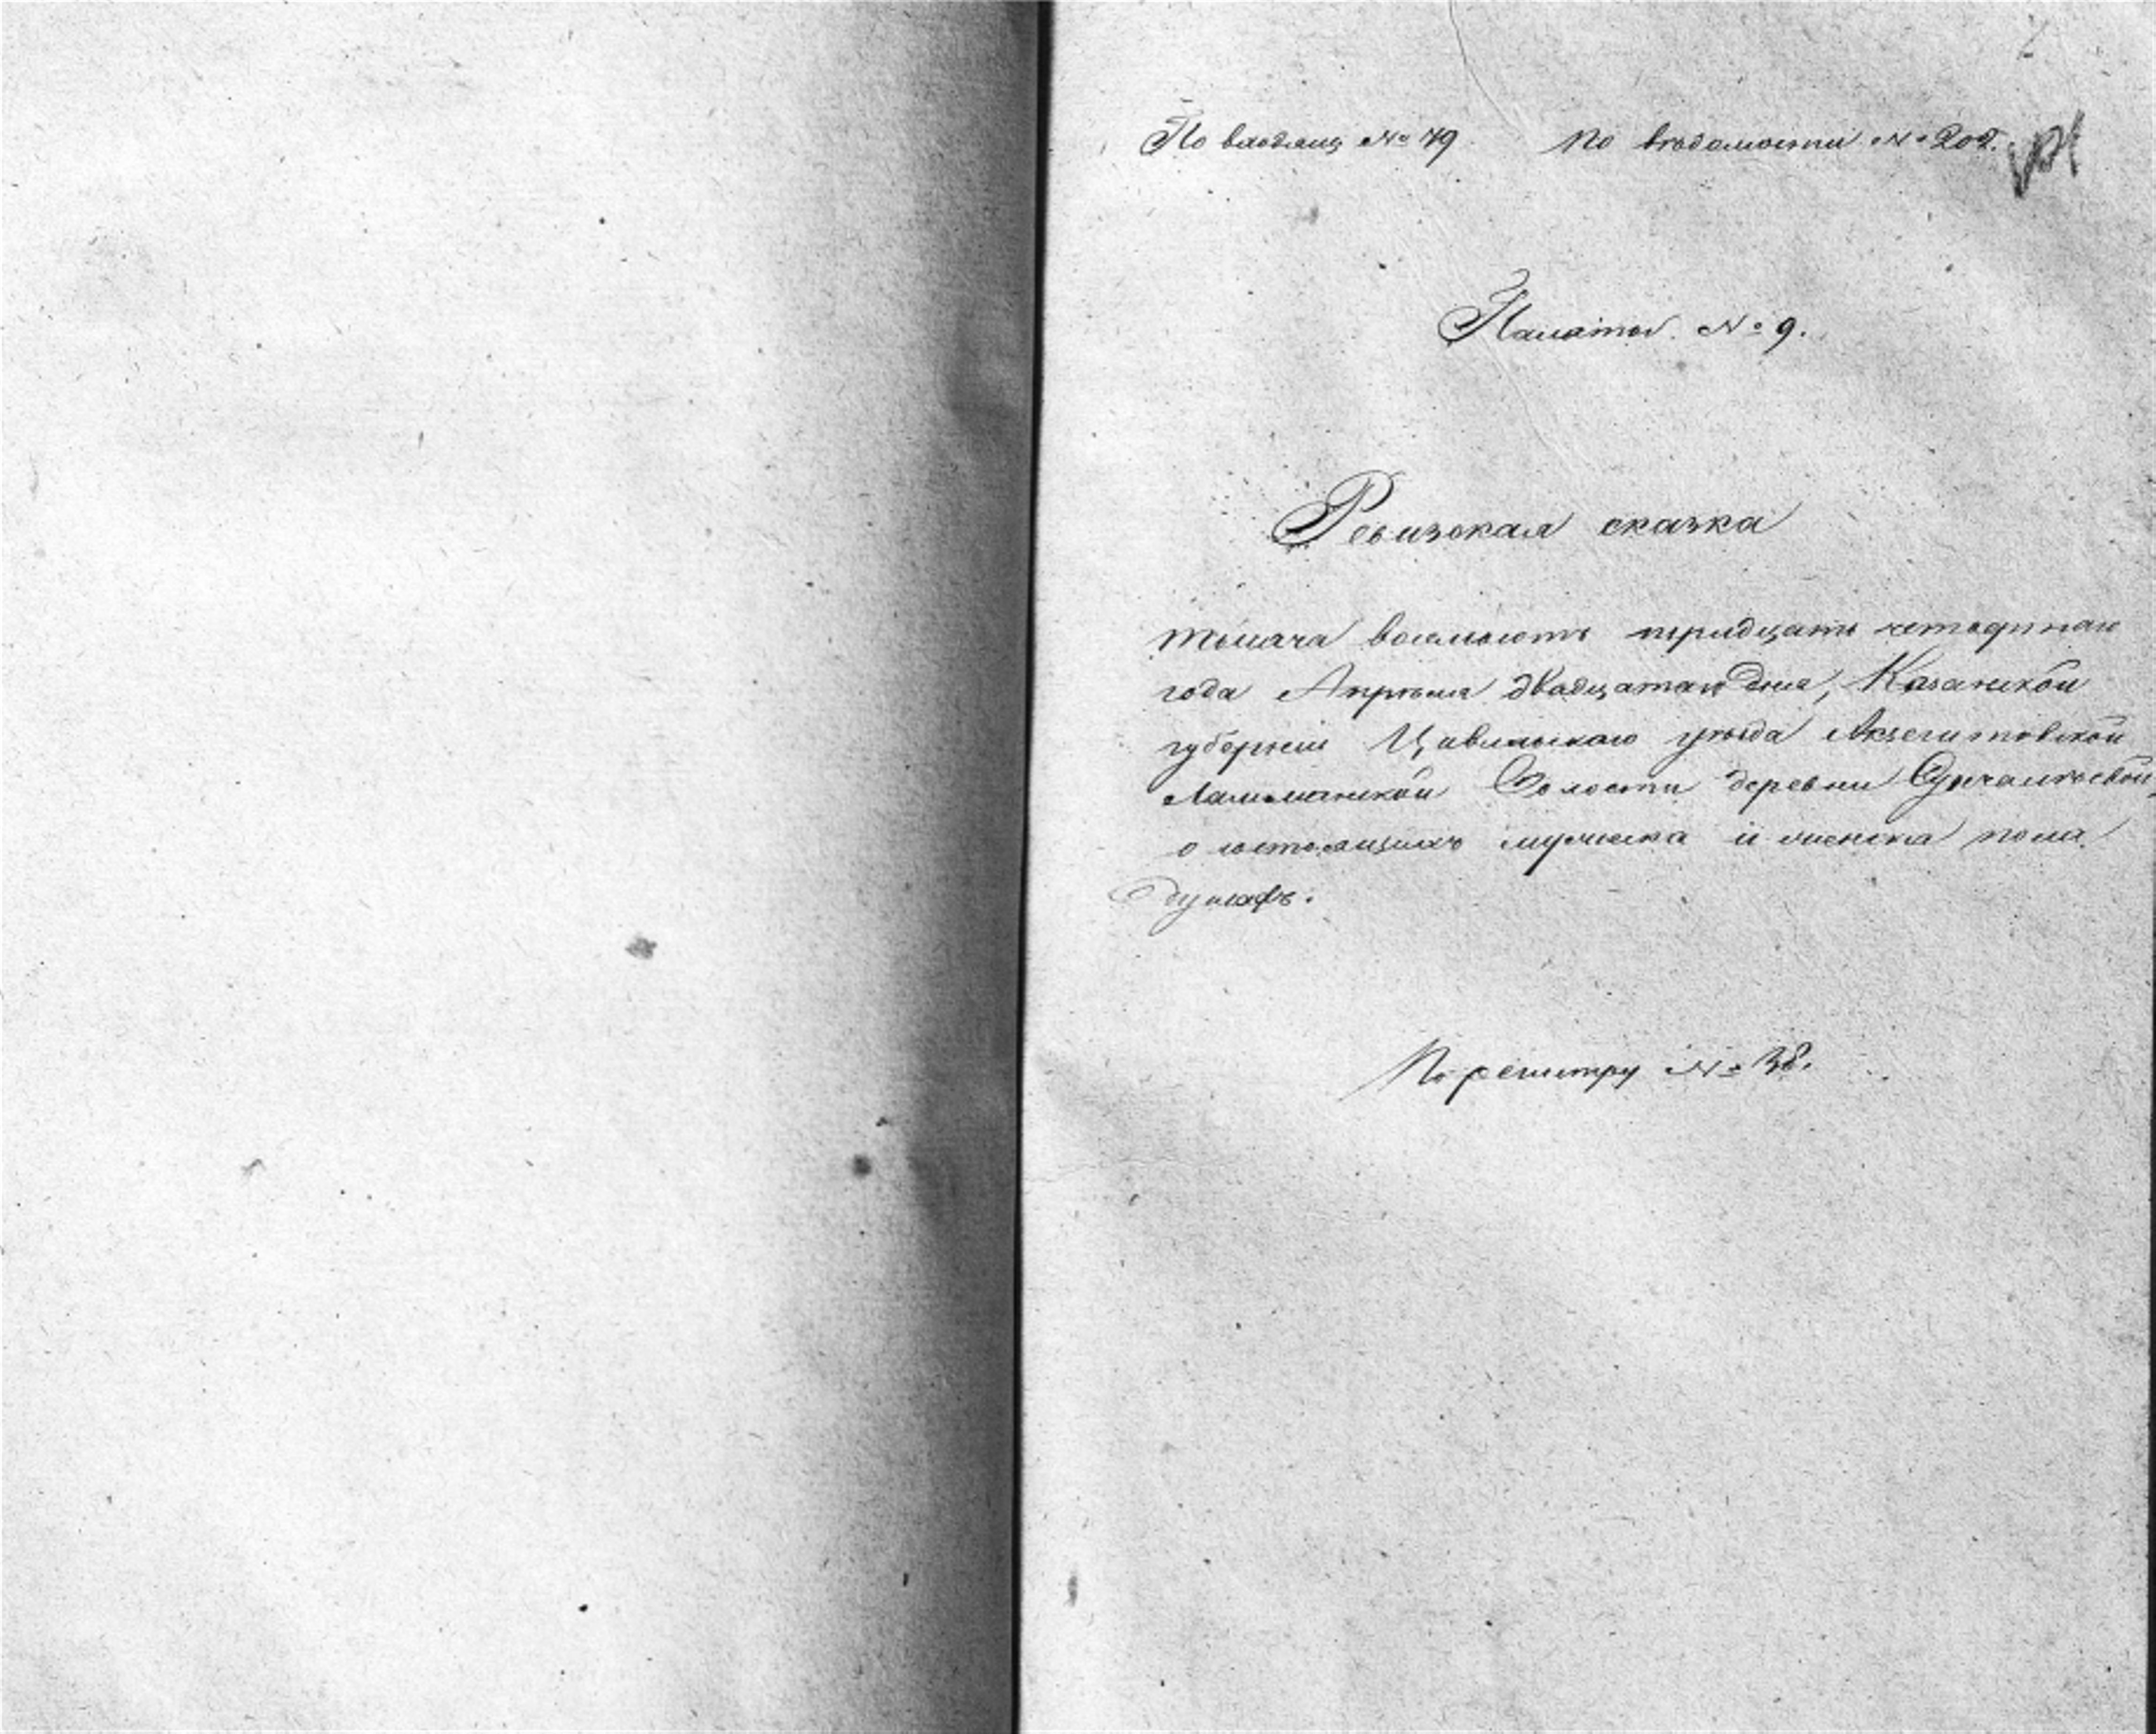 По входящ № 79 По вѣдомости № 202.
Палатой № 9.
Ревизская сказка
тысяча восемьсотъ тридцать четвертаго
года Апрѣля двадцатаго дня, Казанской
губернiи Цивильскаго уѣзда
волости деревни
о состоящихъ мужеска и женска пола
душахъ.
По регистру № 38.